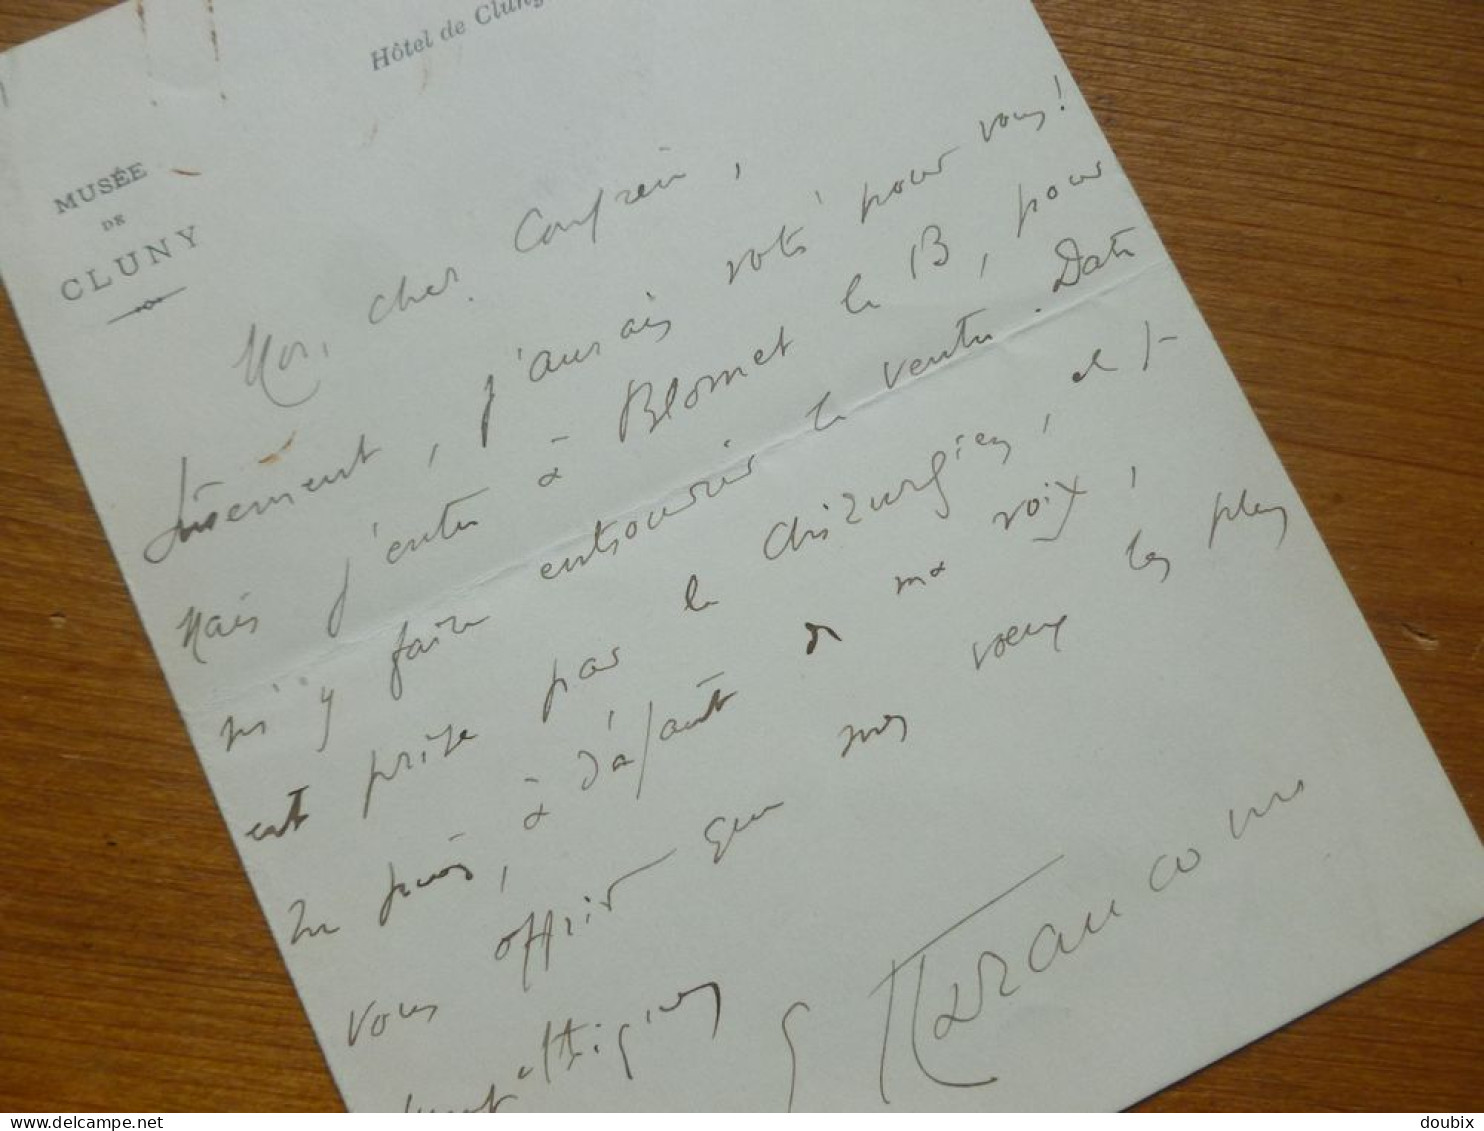 Hôtel de Cluny
MUSÉE
DE
CLUNY
Mon cher Confrère,
Sûrement, j'aurais voté pour vous!
Mais j'entre à Blomet le 13, pour
m'y faire entrouvrir le ventre. Date
est prise par le chirurgien, et je
ne puis, à défaut de ma voix,
vous offrir que mes vœux les plus
sympathiques
E Haraucourt
www.delcampe.net
doubix